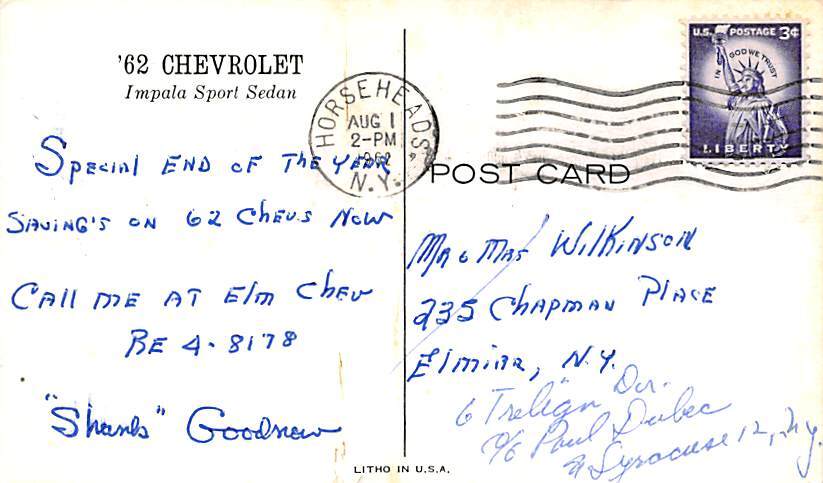 '62 CHEVROLET
Impala Sport Sedan
SPECIAL END OF THE YEAR
SAVING'S ON 62 CHEVS NOW
CALL ME AT ELM CHEV
RE 4-8178
"Shanks" Goodnow
HORSEHEADS,
AUG 1
2-PM
1962
N.Y.
U.S. POSTAGE 3¢
IN GOD WE TRUST
LIBERTY
POST CARD
MR & MRS WILKINSON
235 CHAPMAN PLACE
ELMIRA, N.Y.
6 Dr.
c/o Paul
Syracuse 12, N.Y.
LITHO IN U.S.A.